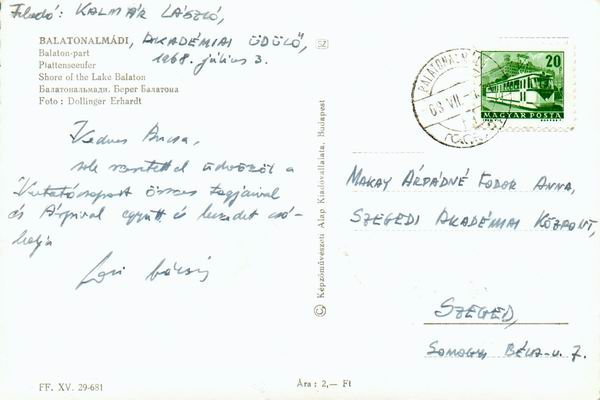 Feladó: KALMÁR LÁSZLÓ,
BALATONALMÁDI, AKADÉMIAI ÜDÜLŐ,
1968. július 3.
Balaton-part
Plattenseeufer
Shore of the Lake Balaton
Балатональмади. Берег Балатона
Foto: Dollinger Erhardt
Kedves Ancsa,
sok szeretettel üdvözöl a
Kutatócsoport összes tagjaival
és Árpival együtt és kezedet csó-
kolja
Laci bácsi
FF. XV. 29-681
© Képzőművészeti Alap Kiadóvállalata, Budapest
Ára: 2,— Ft
20
MAGYAR POSTA
MAKAY ÁRPÁDNÉ FODOR ANNA,
SZEGEDI AKADÉMIAI KÖZPONT,
SZEGED,
SOMOGYI BÉLA-u. 7.